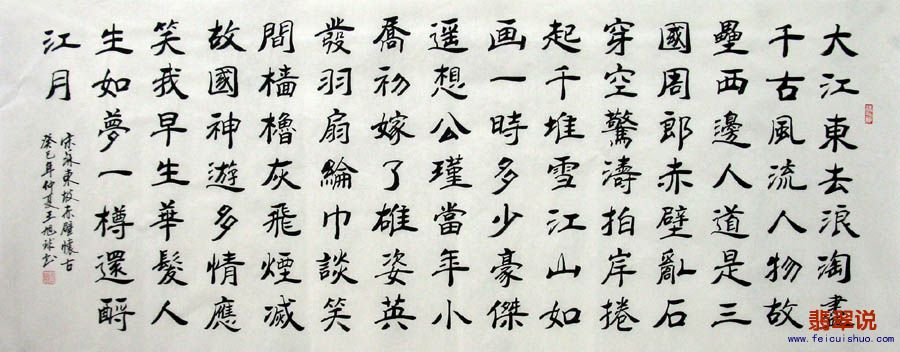 大江東去浪淘盡
千古風流人物故
壘西邊人道是三
國周郎赤壁亂石
穿空驚濤拍岸捲
起千堆雪江山如
画一時多少豪傑
遥想公瑾當年小
喬初嫁了雄姿英
發羽扇綸巾談笑
間檣櫓灰飛煙滅
故國神遊多情應
笑我早生華髮人
生如夢一樽還酹
江月
宋蘇東坡赤壁懷古
癸巳年仲夏王旭球书
翡翠说
www.feicuishuo.com